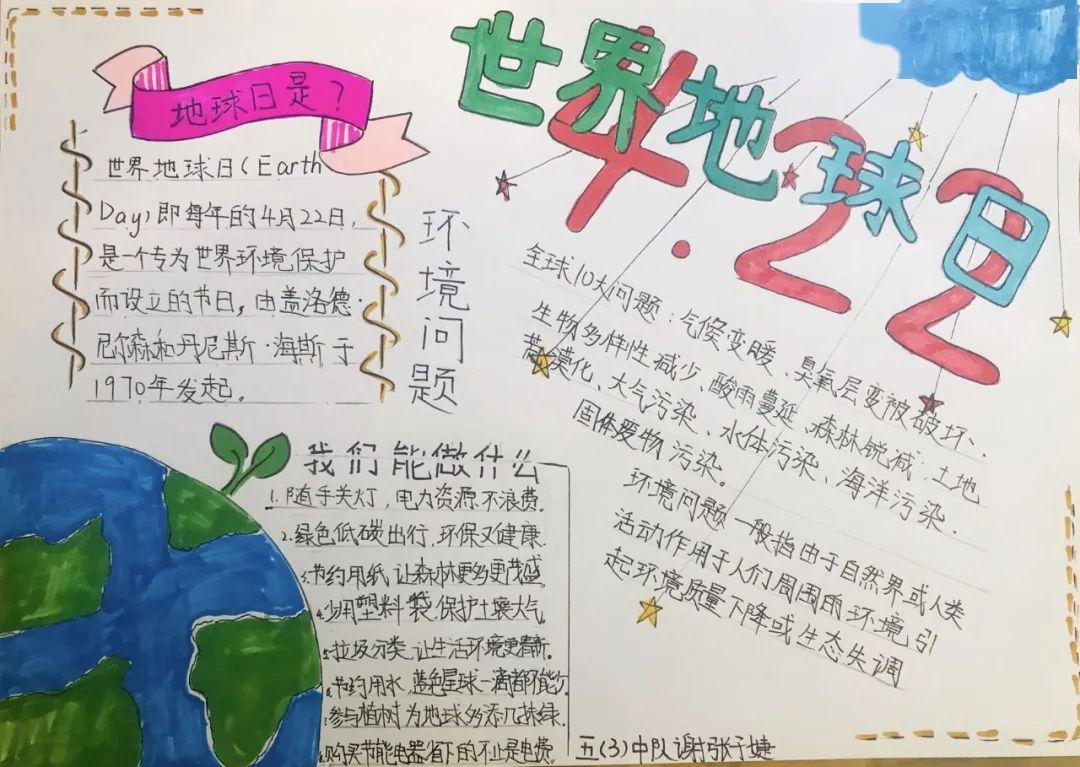 世界地球日
4.22
地球日是？
世界地球日（Earth
Day）即每年的4月22日，
是一个专为世界环境保护
而设立的节日，由盖洛德·
尼尔森和丹尼斯·海斯于
1970年发起。
环境问题
全球10大问题：气候变暖、臭氧层变被破坏、
生物多样性减少、酸雨蔓延、森林锐减、土地
荒漠化、大气污染、水体污染、海洋污染、
固体废物污染。
环境问题一般指由于自然界或人类
活动作用于人们周围的环境引
起环境质量下降或生态失调
我们能做什么
1.随手关灯，电力资源不浪费.
2.绿色低碳出行，环保又健康.
3.节约用纸，让森林更多更茂盛
4.少用塑料袋，保护土壤大气
5.垃圾分类，让生活环境更清新.
6.节约用水，蓝色星球一滴都不能少.
7.参与植树为地球多添几抹绿.
8.购买节能电器省下的不止是电费.
五(3)中队谢张于婕